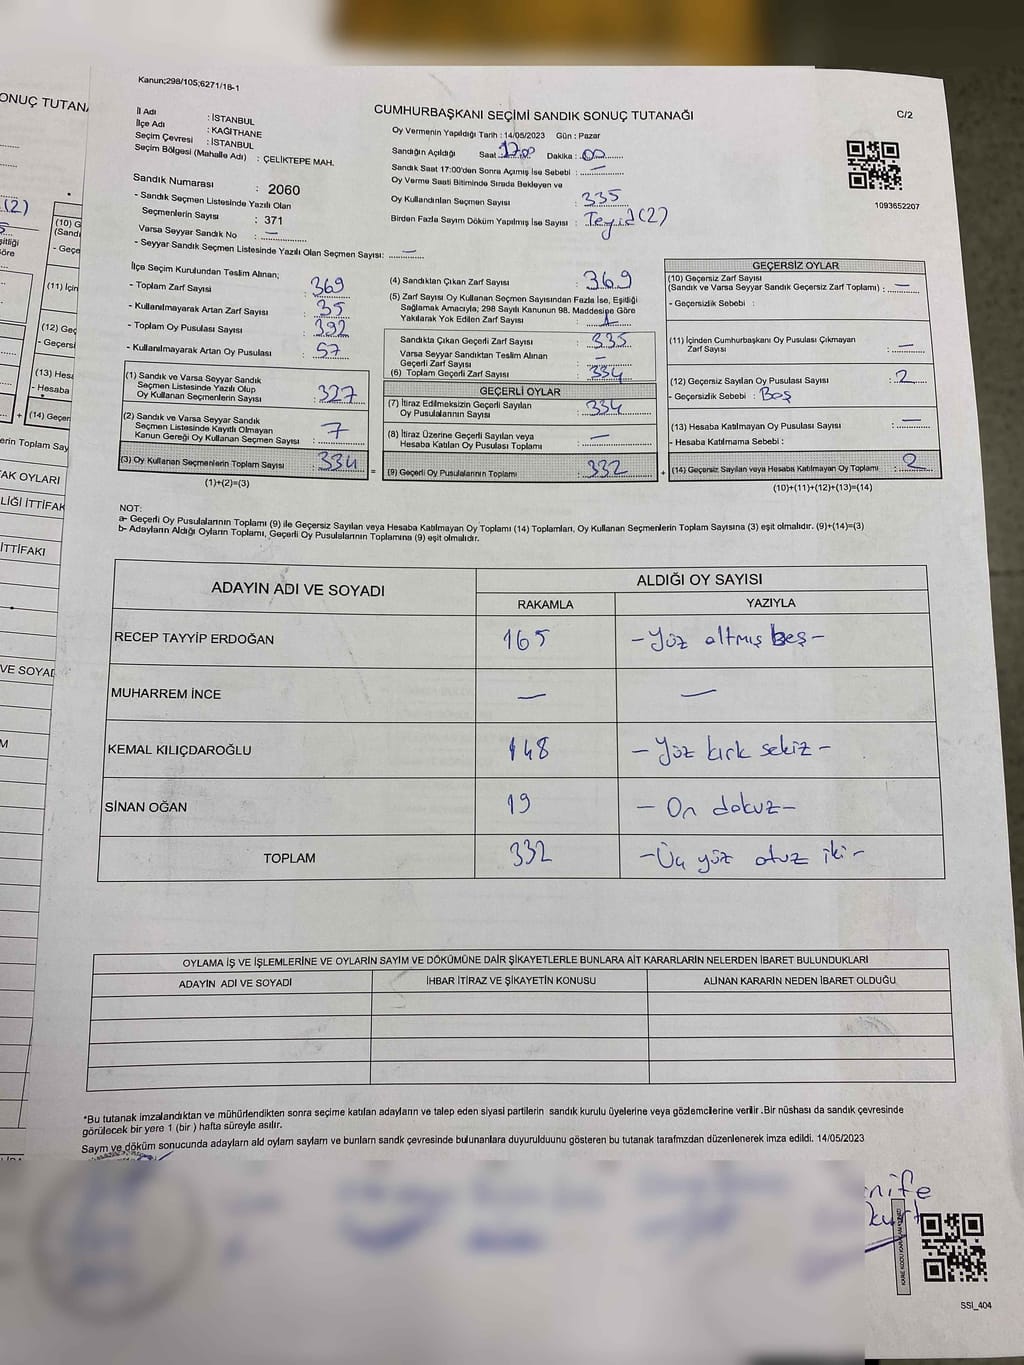 Kanun;298/105;6271/18-1
ONUÇ TUTANA
CUMHURBAŞKANI SEÇİMİ SANDIK SONUÇ TUTANAĞI
C/2
İl Adı : İSTANBUL
İlçe Adı : KAĞITHANE
Seçim Çevresi : İSTANBUL
Seçim Bölgesi (Mahalle Adı) : ÇELİKTEPE MAH.
Oy Vermenin Yapıldığı Tarih : 14/05/2023 Gün : Pazar
Sandığın Açıldığı Saat 17:00 Dakika : 00
Sandık Saat 17:00'den Sonra Açımış İse Sebebi : —
Oy Verme Saati Bitiminde Sırada Bekleyen ve
Oy Kullandırılan Seçmen Sayısı : 335
Birden Fazla Sayım Döküm Yapılmış İse Sayısı : Teyid (2)
1093652207
Sandık Numarası : 2060
- Sandık Seçmen Listesinde Yazılı Olan
Seçmenlerin Sayısı : 371
Varsa Seyyar Sandık No : —
- Seyyar Sandık Seçmen Listesinde Yazılı Olan Seçmen Sayısı: —
İlçe Seçim Kurulundan Teslim Alınan;
- Toplam Zarf Sayısı : 369
- Kullanılmayarak Artan Zarf Sayısı : 35
- Toplam Oy Pusulası Sayısı : 392
- Kullanılmayarak Artan Oy Pusulası : 57
(1) Sandık ve Varsa Seyyar Sandık
Seçmen Listesinde Yazılı Olup
Oy Kullanan Seçmenlerin Sayısı : 327
(2) Sandık ve Varsa Seyyar Sandık
Seçmen Listesinde Kayıtlı Olmayan
Kanun Gereği Oy Kullanan Seçmen Sayısı : 7
(3) Oy Kullanan Seçmenlerin Toplam Sayısı : 334
(1)+(2)=(3)
(4) Sandıktan Çıkan Zarf Sayısı : 369
(5) Zarf Sayısı Oy Kullanan Seçmen Sayısından Fazla İse, Eşitliği
Sağlamak Amacıyla; 298 Sayılı Kanunun 98. Maddesine Göre
Yakılarak Yok Edilen Zarf Sayısı : 1
Sandıkta Çıkan Geçerli Zarf Sayısı : 335
Varsa Seyyar Sandıktan Teslim Alınan
Geçerli Zarf Sayısı : —
(6) Toplam Geçerli Zarf Sayısı : 334
GEÇERLİ OYLAR
(7) İtiraz Edilmeksizin Geçerli Sayılan
Oy Pusulalarının Sayısı : 334
(8) İtiraz Üzerine Geçerli Sayılan veya
Hesaba Katılan Oy Pusulası Toplamı : —
= (9) Geçerli Oy Pusulalarının Toplamı : 332
GEÇERSİZ OYLAR
(10) Geçersiz Zarf Sayısı
(Sandık ve Varsa Seyyar Sandık Geçersiz Zarf Toplamı) : —
- Geçersizlik Sebebi :
(11) İçinden Cumhurbaşkanı Oy Pusulası Çıkmayan
Zarf Sayısı : —
(12) Geçersiz Sayılan Oy Pusulası Sayısı : 2
- Geçersizlik Sebebi : Boş
(13) Hesaba Katılmayan Oy Pusulası Sayısı : —
- Hesaba Katılmama Sebebi :
+ (14) Geçersiz Sayılan veya Hesaba Katılmayan Oy Toplamı : 2
(10)+(11)+(12)+(13)=(14)
NOT:
a- Geçerli Oy Pusulalarının Toplamı (9) ile Geçersiz Sayılan veya Hesaba Katılmayan Oy Toplamı (14) Toplamları, Oy Kullanan Seçmenlerin Toplam Sayısına (3) eşit olmalıdır. (9)+(14)=(3)
b- Adayların Aldığı Oyların Toplamı, Geçerli Oy Pusulalarının Toplamına (9) eşit olmalıdır.
ADAYIN ADI VE SOYADI
ALDIĞI OY SAYISI
RAKAMLA YAZIYLA
RECEP TAYYİP ERDOĞAN 165 -Yüz altmış beş-
MUHARREM İNCE — —
KEMAL KILIÇDAROĞLU 148 -Yüz kırk sekiz-
SİNAN OĞAN 19 - On dokuz-
TOPLAM 332 -Üç yüz otuz iki-
OYLAMA İŞ VE İŞLEMLERİNE VE OYLARIN SAYIM VE DÖKÜMÜNE DAİR ŞİKAYETLERLE BUNLARA AİT KARARLARIN NELERDEN İBARET BULUNDUKLARI
ADAYIN ADI VE SOYADI İHBAR İTİRAZ VE ŞİKAYETİN KONUSU ALINAN KARARIN NEDEN İBARET OLDUĞU
*Bu tutanak imzalandıktan ve mühürlendikten sonra seçime katılan adayların ve talep eden siyasi partilerin sandık kurulu üyelerine veya gözlemcilerine verilir .Bir nüshası da sandık çevresinde
görülecek bir yere 1 (bir ) hafta süreyle asılır.
Saym ve döküm sonucunda adaylarn ald oylarn saylarn ve bunlarn sandk çevresinde bulunanlara duyurulduunu gösteren bu tutanak tarafmzdan düzenlenerek imza edildi. 14/05/2023
nife
kurt
SSI_404
(2)
(10) G
(Sandı
- Geçe
(11) İçin
(12) Geç
- Geçersi
(13) Hesa
- Hesaba
+ (14) Geçer
erin Toplam Say
AK OYLARI
LİĞİ İTTİFAK
İTTİFAKI
VE SOYAD
M